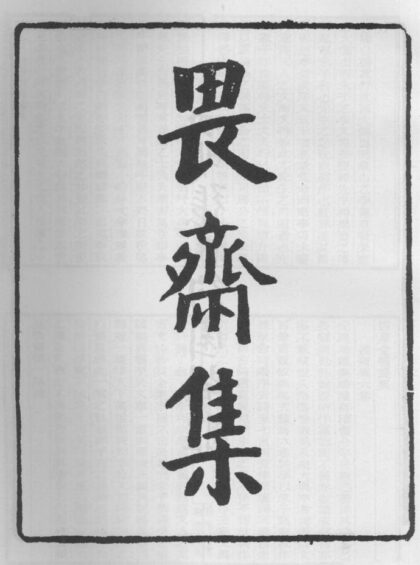 畏齋集